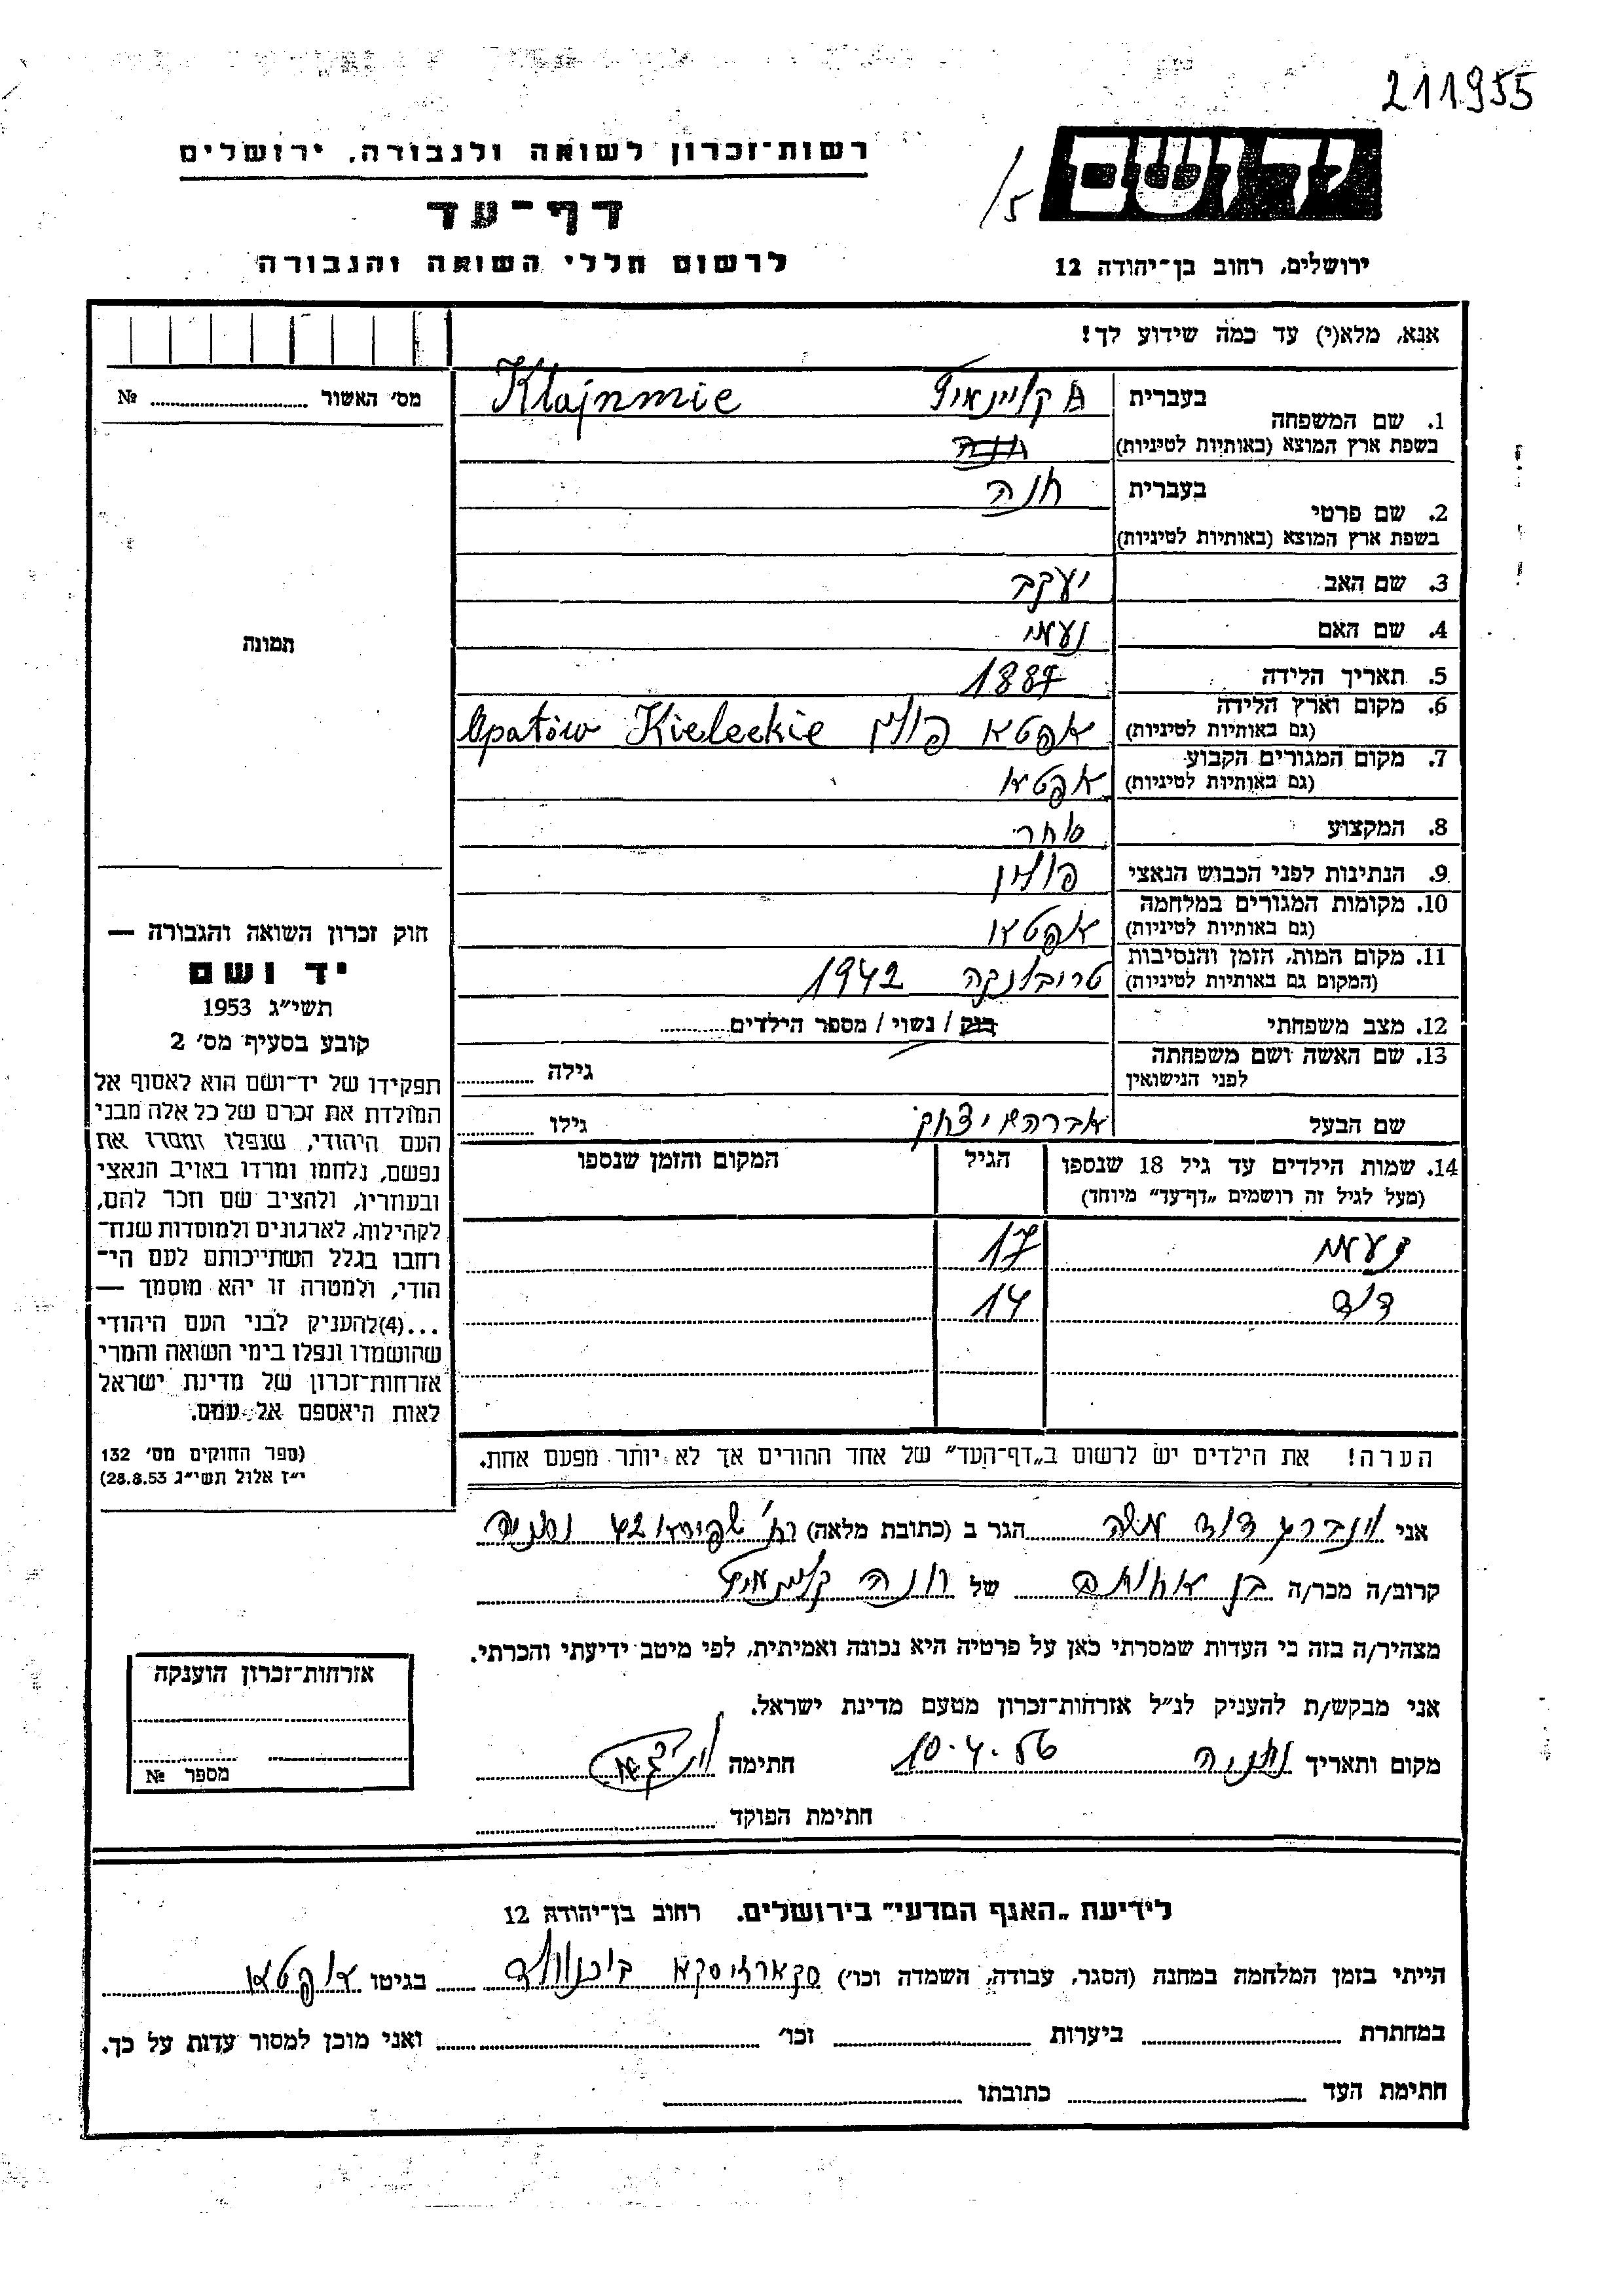 211955
רשות־זכרון לשואה ולגבורה, ירושלים
ידושם
/5
דף־עד
לרשום חללי השואה והגבורה
ירושלים, רחוב בן־יהודה 12
אנא, מלא(י) עד כמה שידוע לך!
מס׳ האשור № 
1. שם המשפחה
בעברית קליינמיץ Klajnmic
בשפת ארץ המוצא (באותיות לטיניות)
2. שם פרטי
בעברית חנה
בשפת ארץ המוצא (באותיות לטיניות)
3. שם האב יעקב
4. שם האם נעמי
5. תאריך הלידה 1887
6. מקום וארץ הלידה אפטא פולין Opatów Kieleckie
(גם באותיות לטיניות)
7. מקום המגורים הקבוע אפטא
(גם באותיות לטיניות)
8. המקצוע סוחר
9. הנתינות לפני הכבוש הנאצי פולין
10. מקומות המגורים במלחמה אפטאו
(גם באותיות לטיניות)
11. מקום המות, הזמן והנסיבות טרובלנקה 1942
(המקום גם באותיות לטיניות)
12. מצב משפחתי רוק / נשוי / מספר הילדים
13. שם האשה ושם משפחתה גילה
לפני הנישואין
שם הבעל אברהם יצחק גילו
14. שמות הילדים עד גיל 18 שנספו הגיל המקום והזמן שנספו
(מעל לגיל זה רושמים „דף־עד” מיוחד)
נעמי 17
דוד 14
הערה! את הילדים יש לרשום ב„דף־העד” של אחד ההורים אך לא יותר מפעם אחת.
תמונה
חוק זכרון השואה והגבורה —
יד ושם
תשי״ג 1953
קובע בסעיף מס׳ 2
תפקידו של יד־ושם הוא לאסוף אל
המולדת את זכרם של כל אלה מבני
העם היהודי, שנפלו ומסרו את
נפשם, נלחמו ומרדו באויב הנאצי
ובעוזריו, ולהציב שם וזכר להם,
לקהילות, לארגונים ולמוסדות שנח־
רחבו בגלל השתייכותם לעם הי־
הודי, ולמטרה זו יהא מוסמך —
...(4)להעניק לבני העם היהודי
שהושמדו ונפלו בימי השואה והמרי
אזרחות־זכרון של מדינת ישראל
לאות היאספם אל עמם.
(ספר החוקים מס׳ 132
י״ז אלול תשי״ג 28.8.53)
אני וינברג דוד משה הגר ב (כתובת מלאה) רח׳ שפירא 42 נתניה
קרוב/ה מכר/ה בן אחותה של חנה קליינמיץ
מצהיר/ה בזה כי העדות שמסרתי כאן על פרטיה היא נכונה ואמיתית, לפי מיטב ידיעתי והכרתי.
אני מבקש/ת להעניק לנ״ל אזרחות־זכרון מטעם מדינת ישראל.
מקום ותאריך נתניה 10.4.56 חתימה
חתימת הפוקד
אזרחות־זכרון הוענקה
מספר №
לידיעת „האגף המדעי” בירושלים. רחוב בן־יהודה 12
הייתי בזמן המלחמה במחנה (הסגר, עבודה, השמדה וכו׳) סקארזיסקא ביכנוולד בגיטו אפטאו
במחתרת ביערות וכו׳ ואני מוכן למסור עדות על כך.
חתימת העד כתובתו